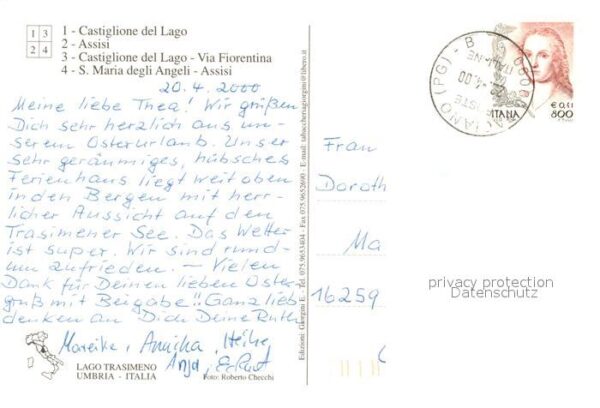 1 3
2 4
1 - Castiglione del Lago
2 - Assisi
3 - Castiglione del Lago - Via Fiorentina
4 - S. Maria degli Angeli - Assisi
20.4.2000
Meine liebe Thea! Wir grüßen
Dich sehr herzlich aus un-
serem Osterurlaub. Unser
sehr geräumiges, hübsches
Ferienhaus liegt weit oben
in den Bergen mit herr-
licher Aussicht auf den
Trasimener See. Das Wetter
ist super. Wir sind rund-
um zufrieden. – Vielen
Dank für Deinen lieben Oster-
gruß mit Beigabe!! Ganz lieb
denken an Dich Deine Ruth
Mareike, Annika, Heike
Anja, Eckart
LAGO TRASIMENO
UMBRIA - ITALIA
Foto: Roberto Checchi
Edizioni: Giorgini E. - Tel. 075.9653404 - Fax 075.9652690 - E-mail: tabaccheriagiorgini@libero.it
(PG) - B
€ 0,41
800
Frau
Doroth
Ma
16259
privacy protection
Datenschutz